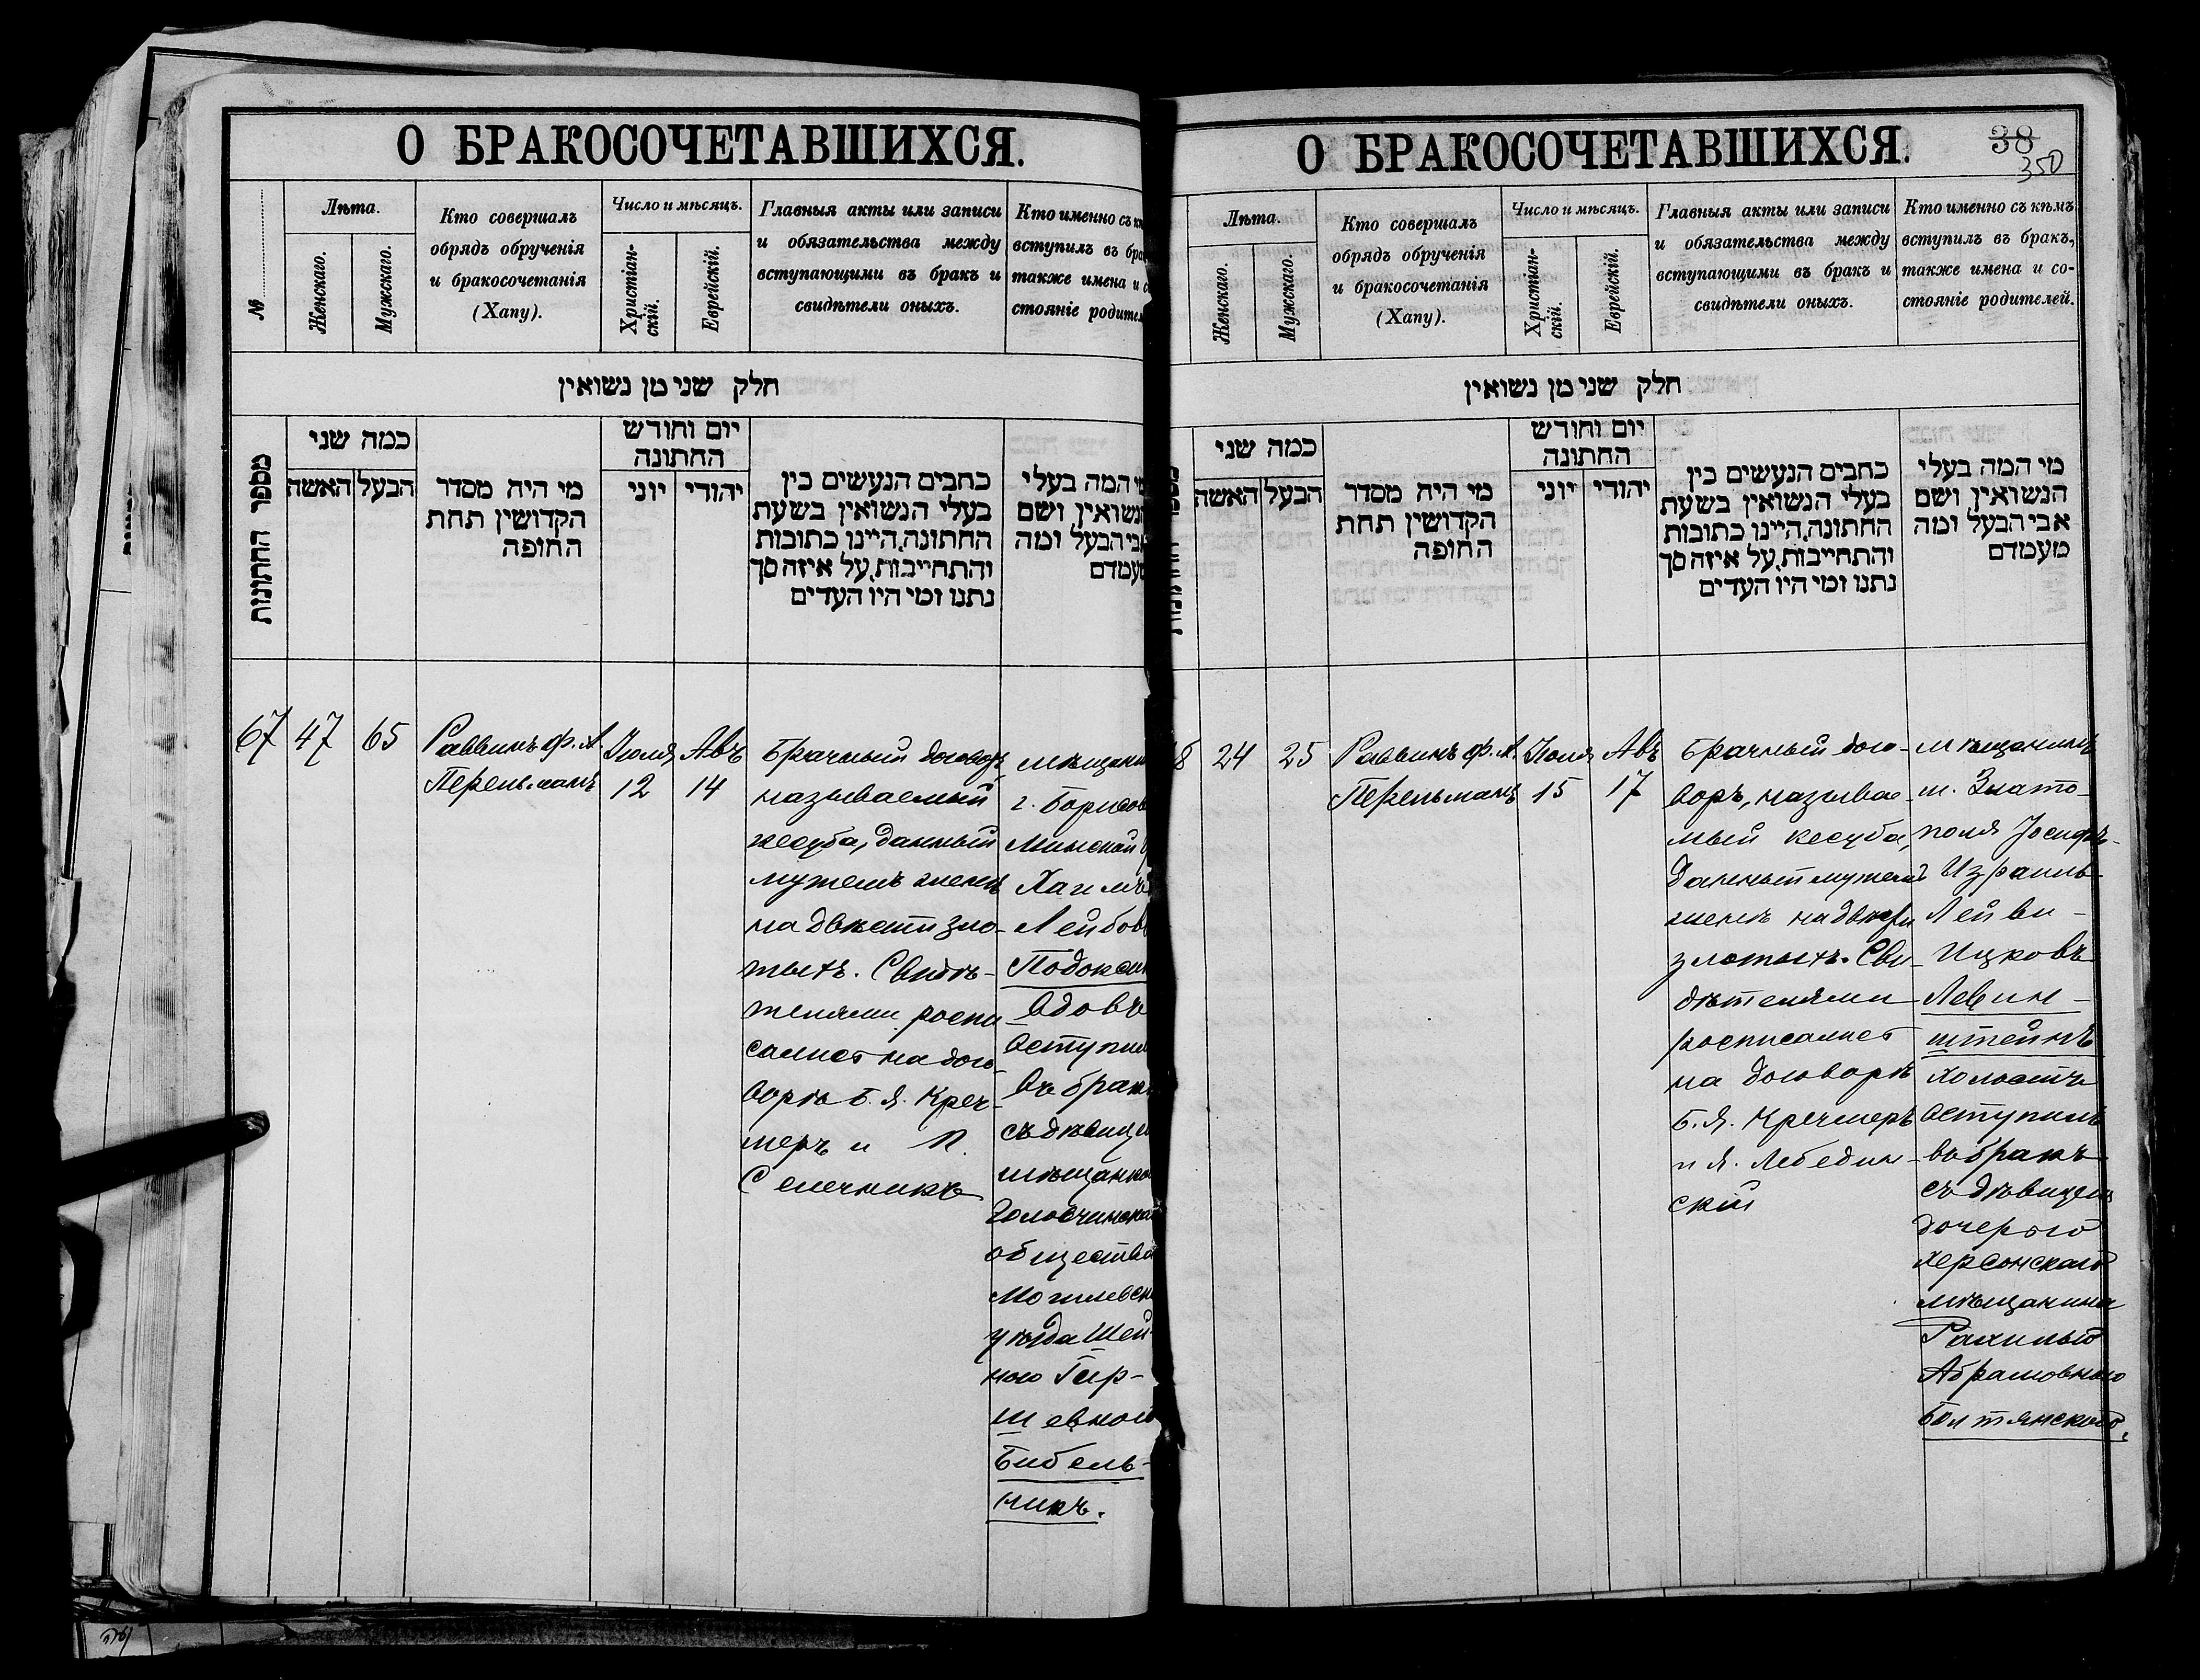 О БРАКОСОЧЕТАВШИХСЯ.
№
Лѣта.
Женскаго.
Мужскаго.
Кто совершалъ
обрядъ обрученія
и бракосочетанія
(Хапу).
Число и мѣсяцъ.
Христіан-
скій.
Еврейскій.
Главныя акты или записи
и обязательства между
вступающими въ бракъ и
свидѣтели оныхъ.
Кто именно съ
вступилъ въ
также имена и
стояніе
חלק שני מן נשואין
מספר החתונות
כמה שני
האשה
הבעל
מי היה מסדר
הקדושין תחת
החופה
יום וחודש
החתונה
יוני
יהודי
כתבים הנעשים בין
בעלי הנשואין בשעת
החתונה, היינו כתובות
והתחייבות, על איזה סך
נתנו ומי היו העדים
המה בעלי
הנשואין ושם
אבי הבעל ומה
מעמדם
67
47
65
Раввинъ Ф. А.
Перельманъ
Іюля
12
Авъ
14
Брачный договоръ,
называемый
кесуба, данный
мужемъ женѣ
на двѣсти зло-
тыхъ. Свидѣ-
телями роспи-
сались на дого-
ворѣ Б. Я. Креч-
меръ и П.
Сѣличникъ
г.
Минской
Хаимъ
Вдовъ
въ бракъ
съ дѣвицей
Голосчинской
общества
уѣзда Шей-
ною Гир-
шевной
Бибель-
никъ.
О БРАКОСОЧЕТАВШИХСЯ.
38
350
Лѣта.
Женскаго.
Мужскаго.
Кто совершалъ
обрядъ обрученія
и бракосочетанія
(Хапу).
Число и мѣсяцъ.
Христіан-
скій.
Еврейскій.
Главныя акты или записи
и обязательства между
вступающими въ бракъ и
свидѣтели оныхъ.
Кто именно съ кѣмъ
вступилъ въ бракъ,
также имена и со-
стояніе родителей.
חלק שני מן נשואין
כמה שני
האשה
הבעל
מי היה מסדר
הקדושין תחת
החופה
יום וחודש
החתונה
יוני
יהודי
כתבים הנעשים בין
בעלי הנשואין בשעת
החתונה, היינו כתובות
והתחייבות, על איזה סך
נתנו ומי היו העדים
מי המה בעלי
הנשואין ושם
אבי הבעל ומה
מעמדם
8
24
25
Раввинъ Ф. А.
Перельманъ
Іюля
15
Авъ
17
Брачный дого-
воръ, называе-
мый кесуба,
данный мужемъ
женѣ на двѣсти
злотыхъ. Сви-
дѣтелями
росписались
на договорѣ
Б. Я. Кречмеръ
и Я. Лебедин-
скій
мѣщанинъ
м. Злато-
поля Іосифъ-
Израиль-
Лейви-
Ицковъ
Левин-
штейнъ
холостъ
вступилъ
въ бракъ
съ дѣвицею
дочерью
Херсонскаго
мѣщанина
Рахилью
Абрамовною
Болтянскою.